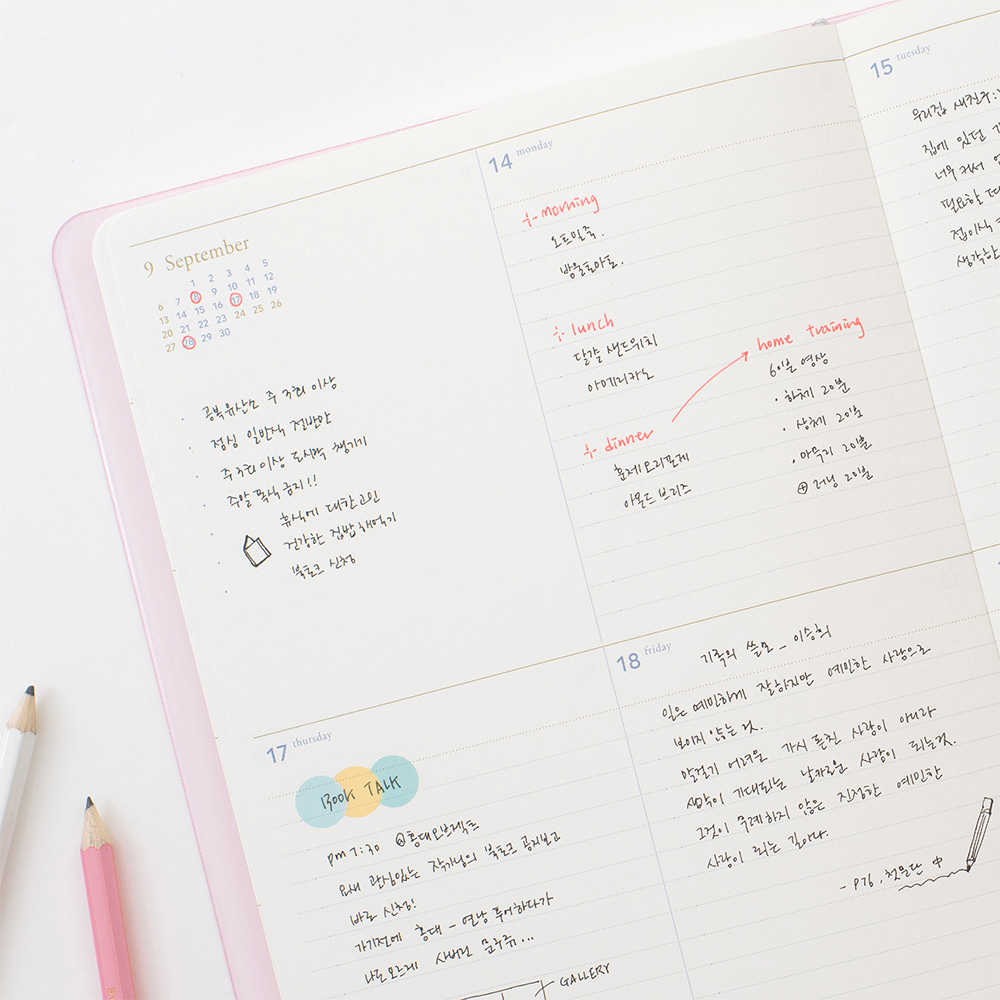 9 September
1 2 3 4 5
6 7 8 9 10 11 12
13 14 15 16 17 18 19
20 21 22 23 24 25 26
27 28 29 30
공복유산소 주 3회 이상
점심 일반식 절반만
주 3회 이상 도시락 챙기기
주말 폭식 금지!!
휴식에 대한 고민
건강한 집밥 해먹기
북토크 신청
14 monday
+ morning
오트밀죽.
방울토마토.
+ lunch
달걀 샌드위치
아메리카노
+ dinner
훈제오리포케
아몬드 브리즈
home training
60분 영상
· 하체 20분
· 상체 20분
· 마무리 20분
⊕ 러닝 20분
15 tuesday
우리집 새친구:
집에 있던
너무 커서
필요할 때
접이식
생각한
17 thursday
BOOK TALK
pm 7:30 @홍대오브젝트
요새 관심있는 작가님의 북토크 공지보고
바로 신청!
가기전에 홍대 - 연남 투어하다가
나도모르게 사버린 문구류...
GALLERY
18 friday
기록의 쓸모 _ 이승희
일은 예민하게 잘하지만 예민한 사람으로
보이지 않는 것.
말걸기 어려운 가시 돋친 사람이 아니라
생각이 기대되는 날카로운 사람이 되는것.
그것이 무례하지 않은 진정한 예민한
사람이 되는 길이다.
- P76, 첫문단 中